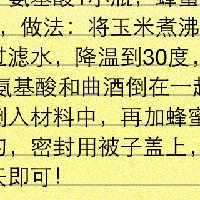 氨基酸1小瓶，蜂蜜
，做法：将玉米煮沸
过滤水，降温到30度，
氨基酸和曲酒倒在一起
倒入材料中，再加蜂蜜
匀，密封用被子盖上，
天即可！